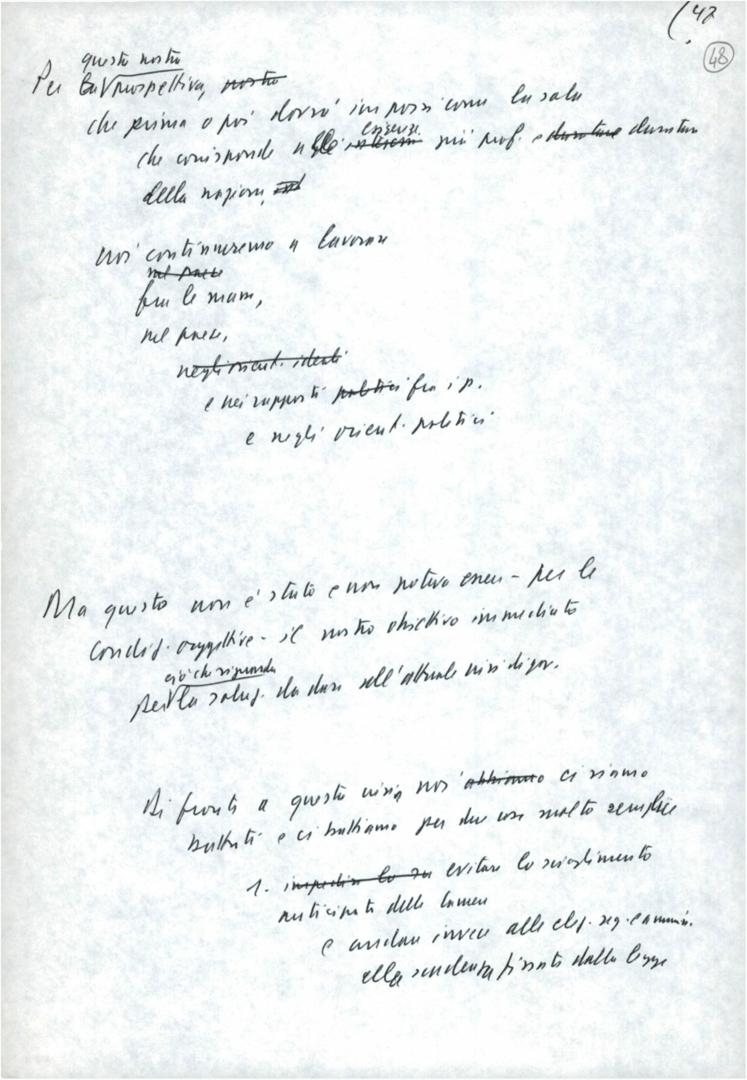 (47
48
questa nostra
Per la prospettiva, nostra
che prima o poi dovrà imporsi come la sola
esigenze
che corisponde alle interessi più prof. e durature durature
della nazione,
noi continueremo a lavorare
nel paese
fra le masse,
nel paese,
negli orient. ideali
e nei rapporti politici fra i p.
e negli orient. politici
Ma questo non è stato e non poteva essere - per le
condiz. oggettive - il nostro obiettivo immediato
ciò che riguarda
per la soluz. da dare all'attuale crisi di gov.
Di fronte a questa crisi noi abbiamo ci siamo
battuti e ci battiamo per due cose molto semplici
1. impedire lo sci evitare lo scioglimento
anticipato delle Camere
e andare invece alle elez. reg. e ammin.
alla scadenza fissata dalla legge